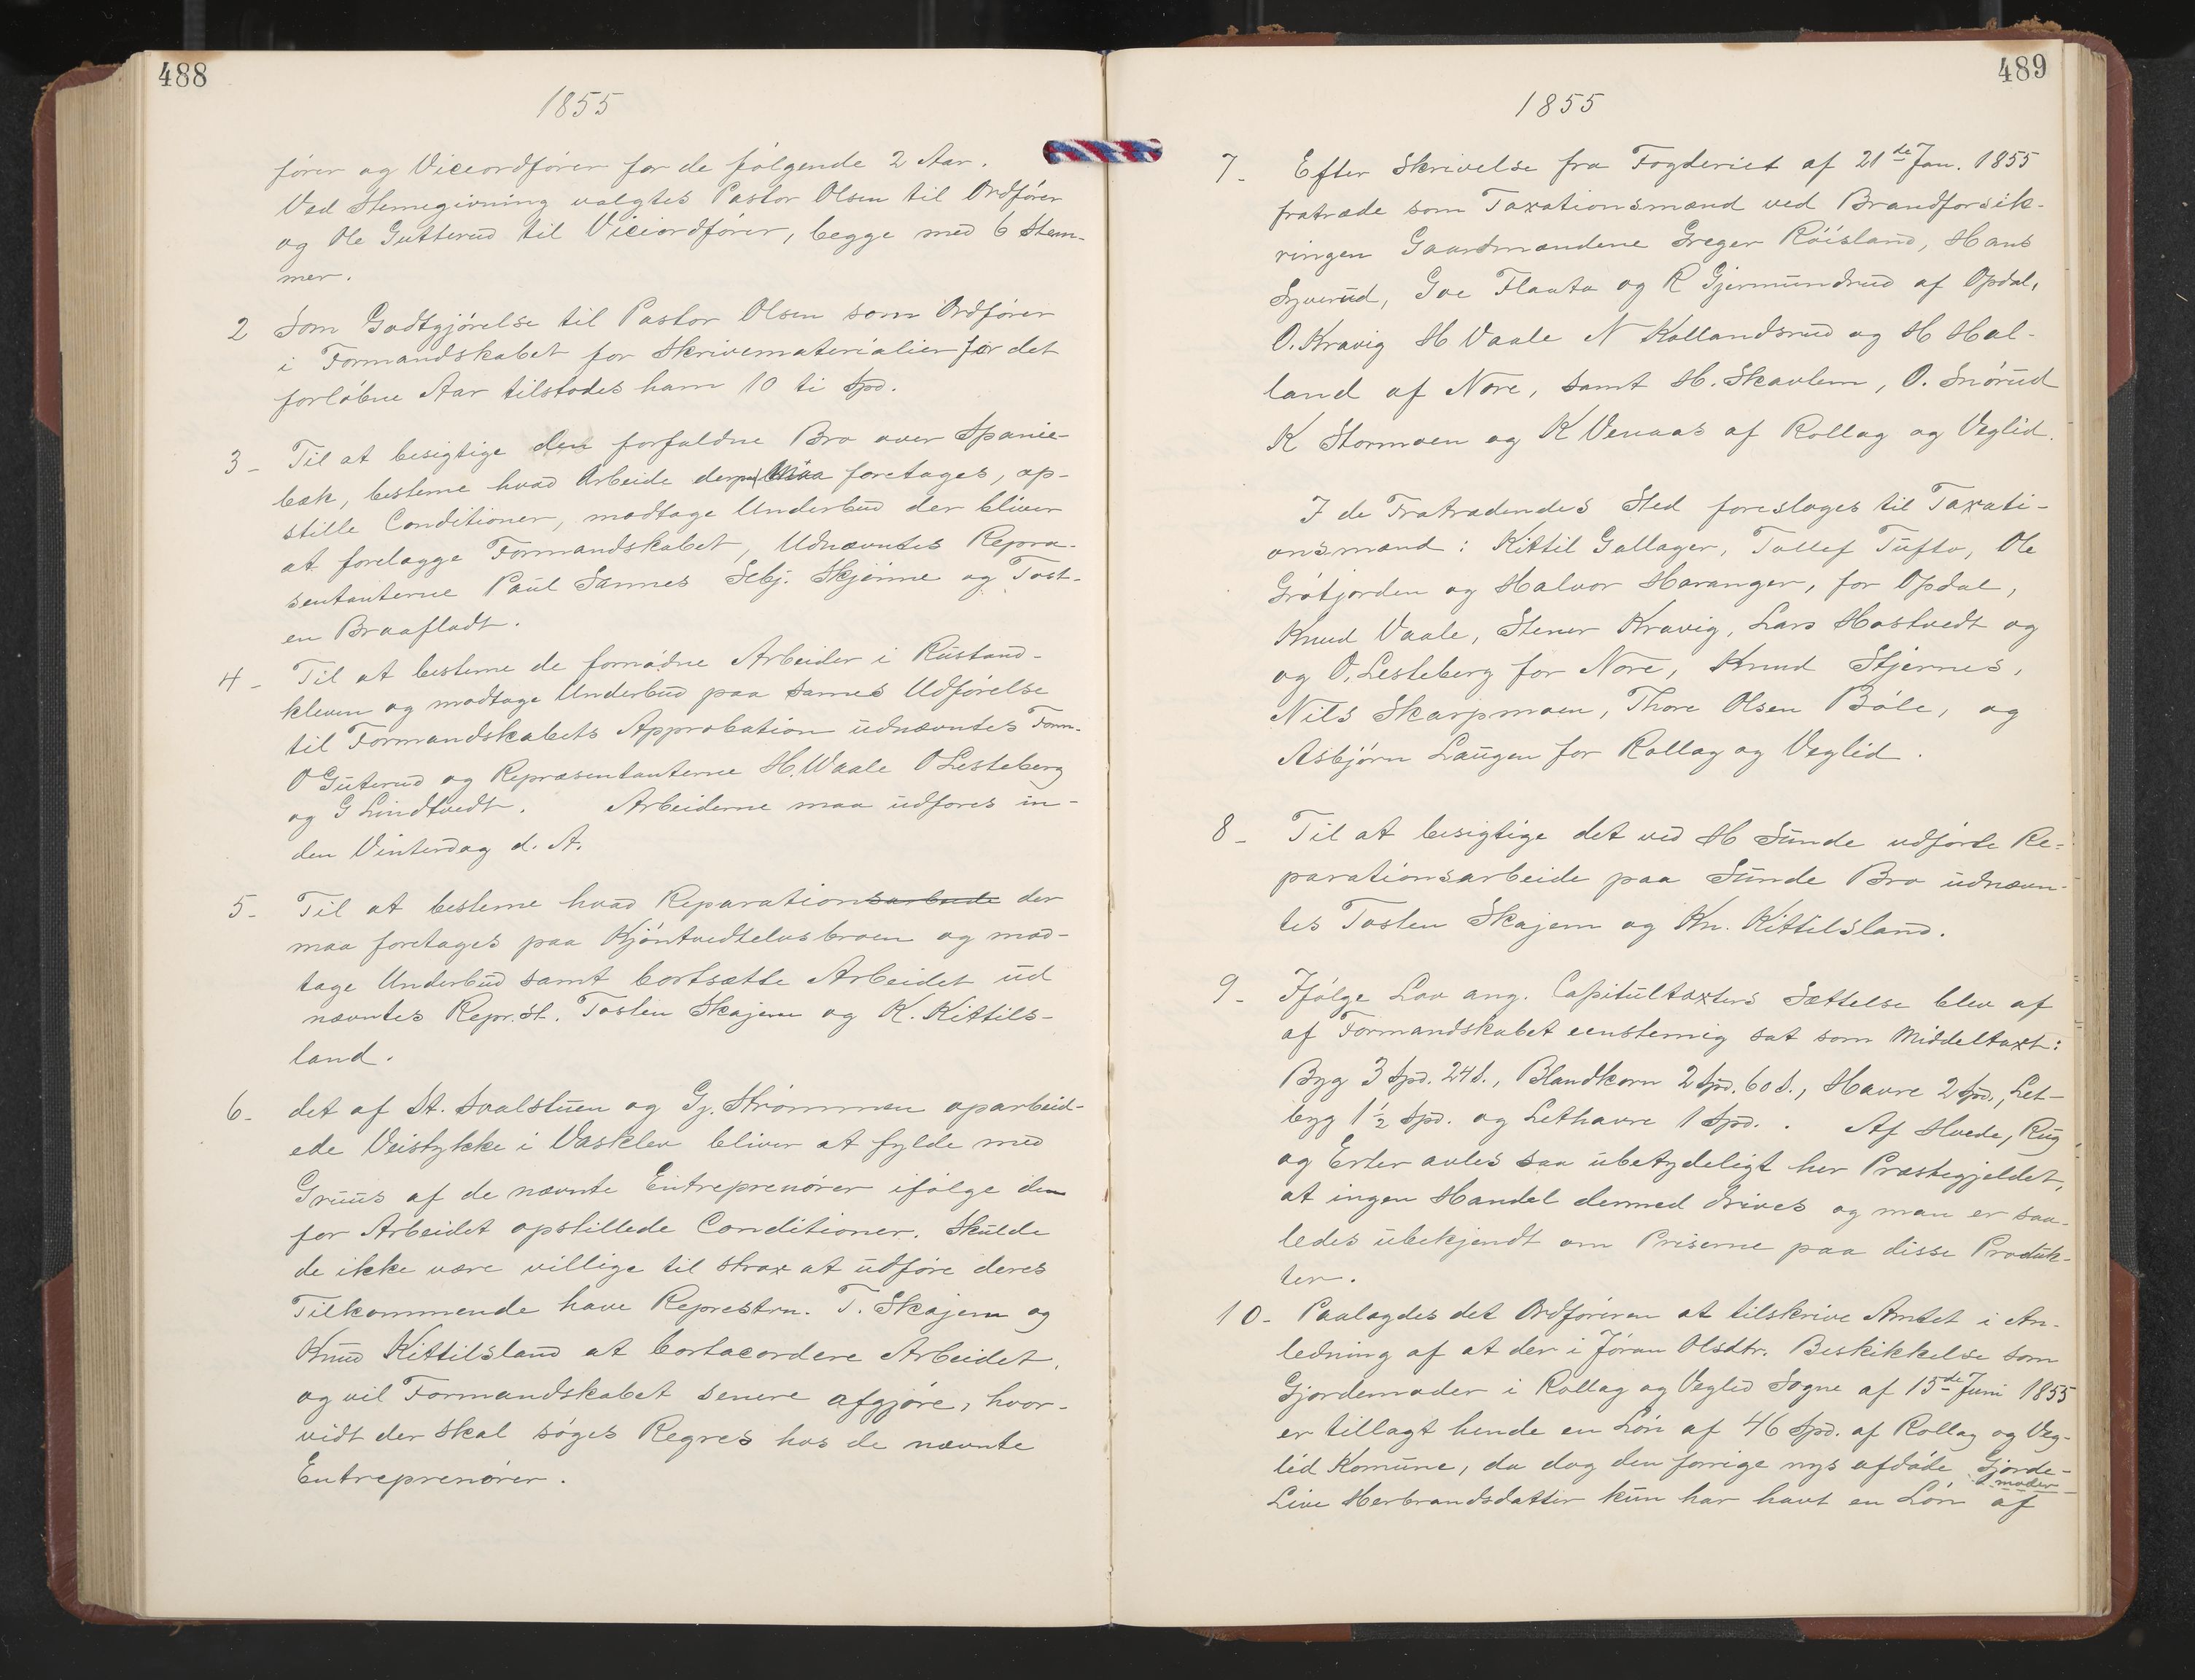 488
1855
fører og Viceordfører for de følgende 2 Aar.
Ved Stemegivning valgtes Pastor Olsen til Ordfører
og Ole Gutterud til Viceordfører, begge med 6 Stem-
mer.
2 Som Godtgjørelse til Pastor Olsen som Ordfører
i Formandskabet for Skrivematerialier for det
forløbne Aar tilstodes ham 10 ti Spd.
3- Til at besigtige den forfaldne Bro over Spanie-
bæk, besteme hvad Arbeide derpaa maa foretages, op-
stille Conditioner, modtage Underbud der bliver
at forelægge Formandskabet, Udnævntes Repræ-
sentanterne Paul Sannes Sebj. Skjønne og Tost-
en Braafladt.
4- Til at besteme de fornødne Arbeider i Rustand-
kleven og modtage Underbud paa sames Udførelse
til Formandskabets Approbation udnævntes Form.
O Guterud og Repræsentanterne H. Waale O Lesteberg
og G Lindtvedt. Arbeiderne maa udføres in-
den Vinterdag d. A.
5- Til at besteme hvad Reparationsarbeide der
maa foretages paa Kjøntvedtelvsbroen og mod-
tage Underbud samt bortsætte Arbeidet ud
nævntes Repr.st. Tosten Skajem og K. Kittils-
land.
6- det af St. Svalstuen og Gj. Strømmen oparbeid-
ede Veistykke i Vasklev bliver at fylde med
Gruus af de nævnte Entreprenører ifølge den
for Arbeidet opstillede Conditioner. Skulde
de ikke være villige til strax at udføre deres
Tilkommende have Represtrn. T. Skajem og
Knud Kittilsland at bortacordere Arbeidet,
og vil Formandskabet senere afgjøre, hvor-
vidt der skal søges Regres hos de nævnte
Entreprenører.
489
1855
7- Efter Skrivelse fra Fogderiet af 21de Jan. 1855
fratræde som Taxationsmænd ved Brandforsik-
ringen Gaardmændene Greger Røisland, Hans
Syverud, Goe Flaata og R Gjermundrud af Opdal,
O. Kravig H Vaale N Kollandsrud og H Hal-
land af Nore, samt H. Skavlem, O. Snørud
K Stormoen og K Venaas af Rollag og Veglid.
I de Fratrædendes Sted foreslages til Taxati-
onsmænd: Kittil Gallager, Tollef Tufto, Ole
Grøtjorden og Halvor Haranger, for Opdal,
Knud Vaale, Stener Kravig, Lars Hostvedt og
og O. Lesteberg for Nore, Knud Stjernes,
Nils Skarpmoen, Thore Olsen Bøle, og
Asbjørn Laugen for Rollag og Veglid.
8- Til at besigtige det ved H Sunde udførte Re-
parationsarbeide paa Sunde Bro udnævn-
tes Tosten Skajem og Kn. Kittilsland.
9- Ifølge Lov ang. Capitultaxters Sættelse blev af
af Formandskabet eenstemig sat som Middeltaxt:
Byg 3 Spd. 24 S., Blandkorn 2 Spd. 60 S., Havre 2 Spd., Let-
byg 1 1/2 Spd. og Lethavre 1 Spd. . Af Hvede, Rug
og Erter avles saa ubetydeligt her Præstegjeldet,
at ingen Handel dermed drives og man er saa-
ledes ubekjendt om Priserne paa disse Produk-
ter.
10- Paalagdes det Ordføreren at tilskrive Amtet i An-
ledning af at der i Jøran Olsdtr. Beskikkelse som
Gjordemoder i Rollag og Veglid Sogne af 15de Juni 1855
er tillagt hende en Løn af 46 Spd. af Rollag og Veg-
lid Komune, da dog den forrige nys afdøde Gjorde-
moder
Live Herbrandsdatter kun har havt en Løn af